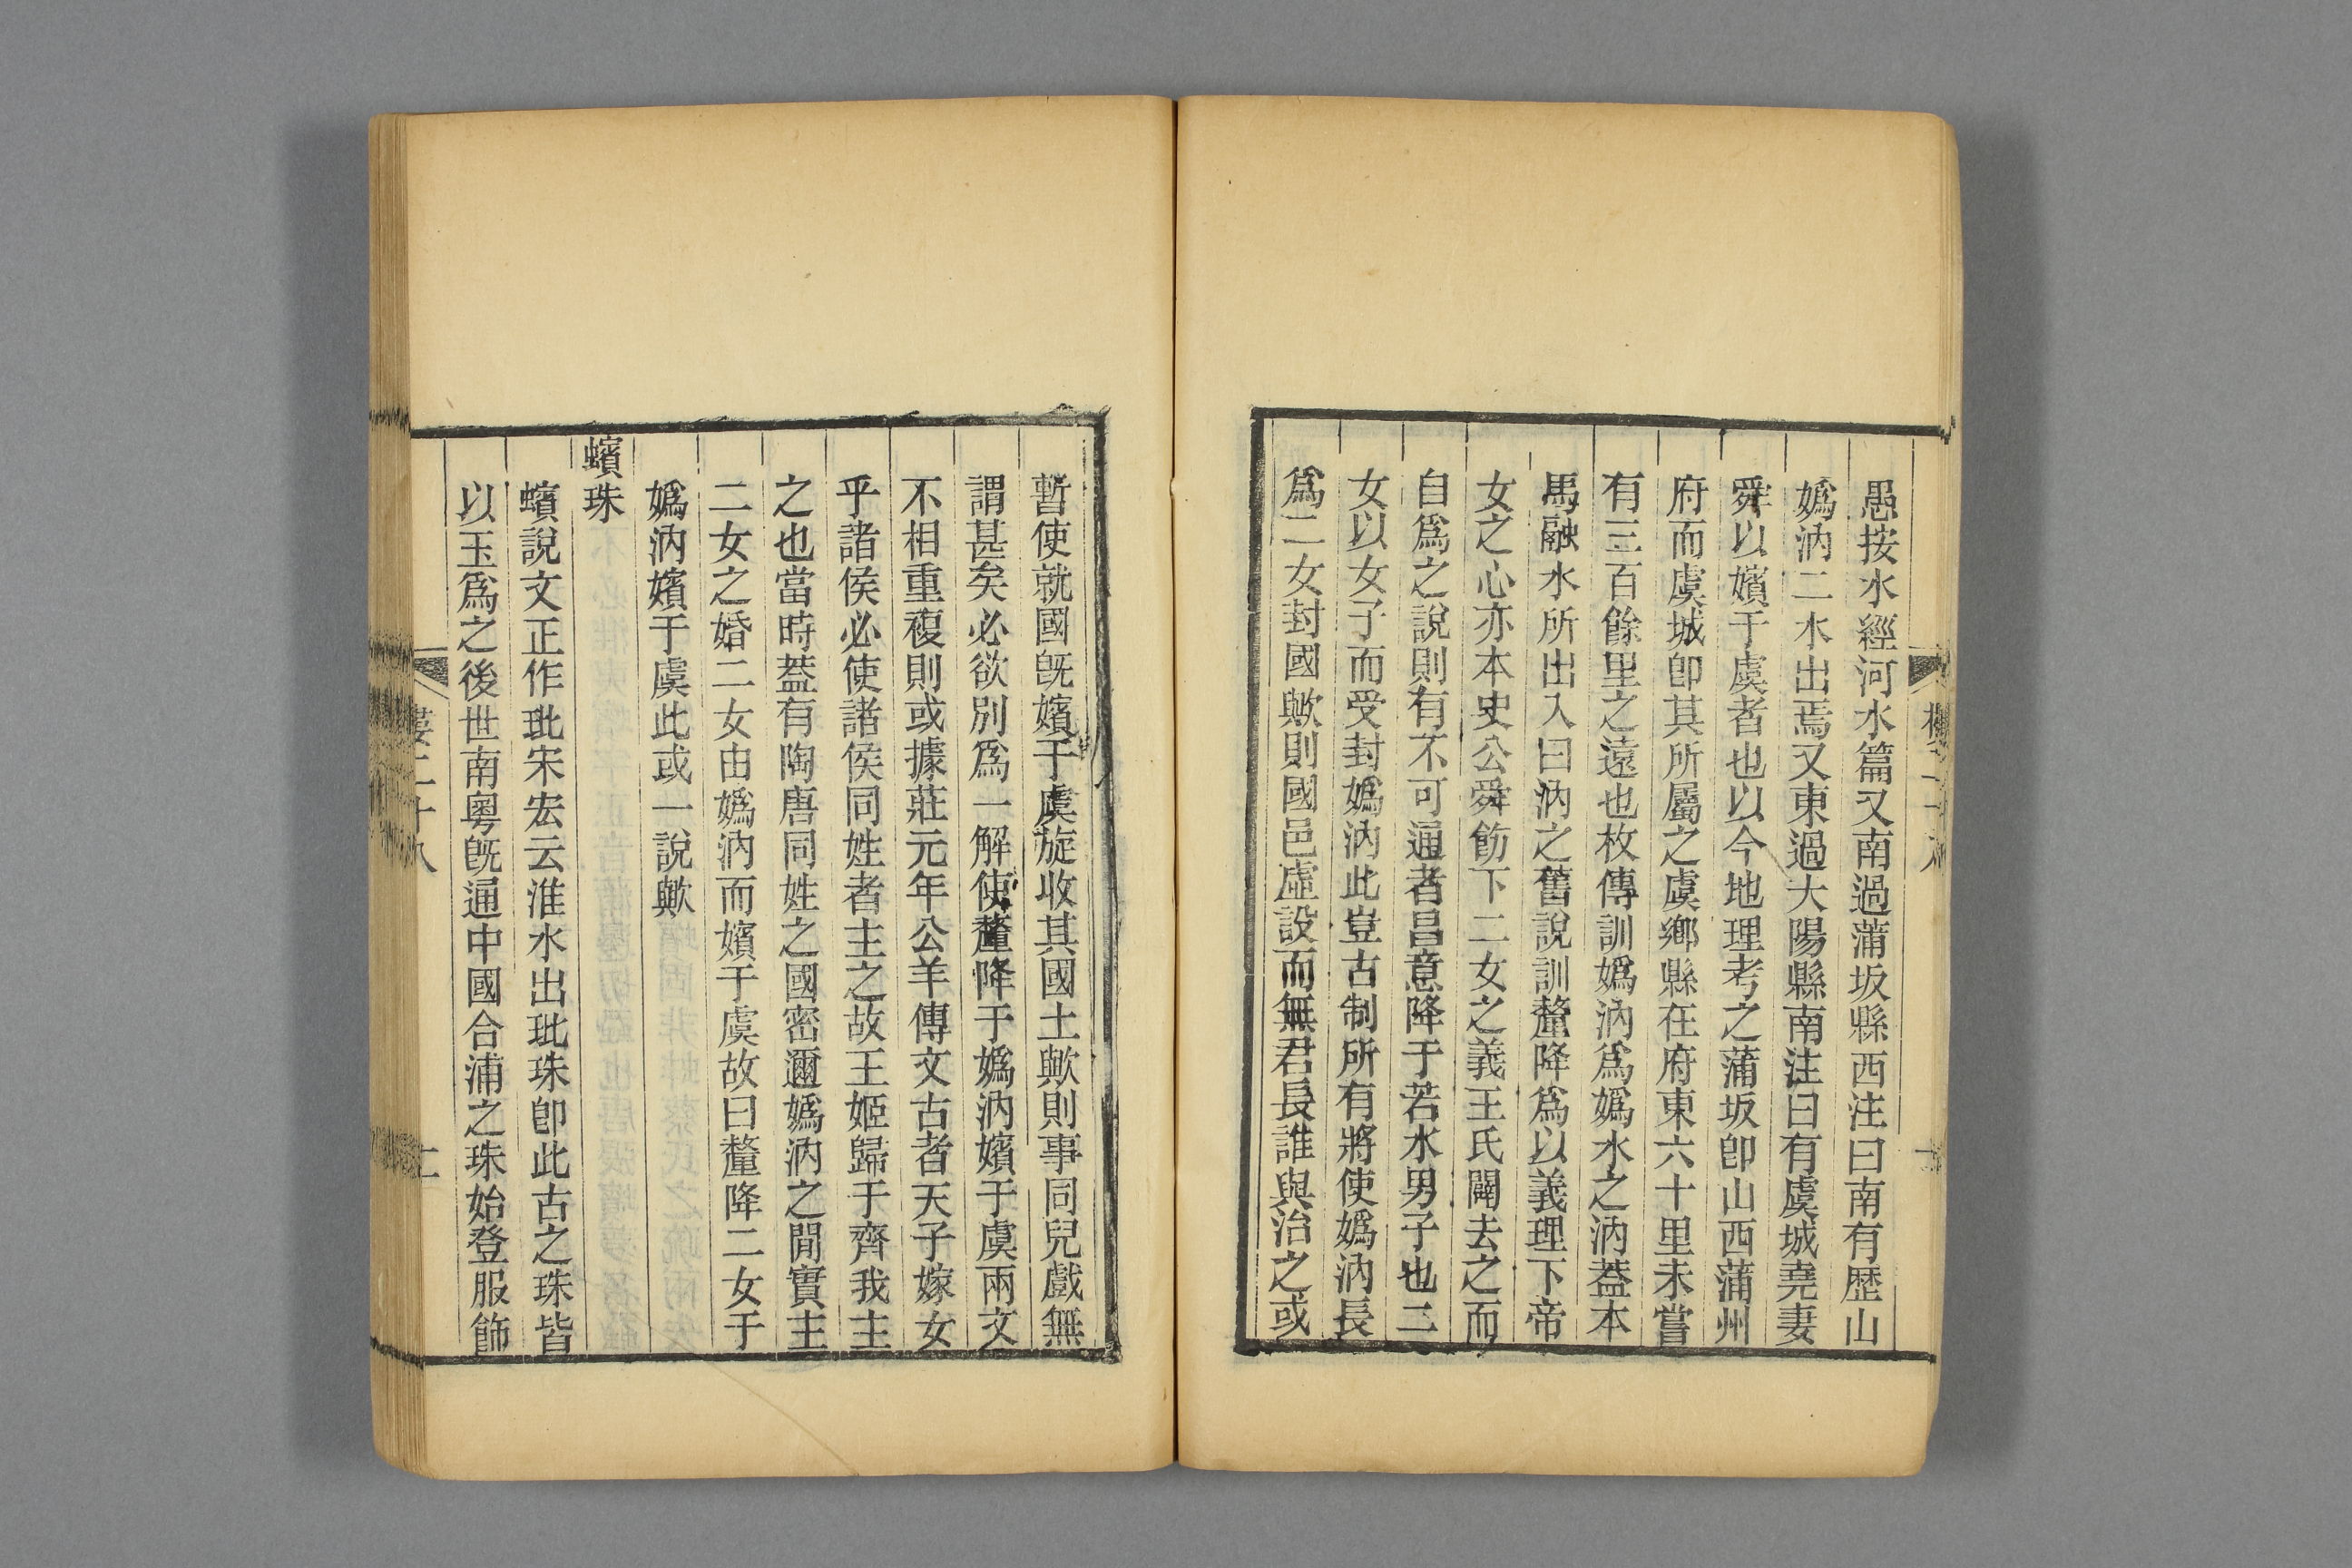 愚按水經河水篇又南過蒲坂縣西注曰南有歷山
嬀汭二水出焉又東過大陽縣南注曰有虞城堯妻
舜以嬪于虞者也以今地理考之蒲坂卽山西蒲州
府而虞城卽其所屬之虞鄉縣在府東六十里未嘗
有三百餘里之遠也枚傳訓嬀汭爲嬀水之汭葢本
馬融水所出入曰汭之舊說訓釐降爲以義理下帝
女之心亦本史公舜飭下二女之義王氏闢去之而
自爲之說則有不可通者昌意降于若水男子也二
女以女子而受封嬀汭此豈古制所有將使嬀汭長
爲二女封國歟則國邑虛設而無君長誰與治之或
暫使就國旣嬪于虞旋收其國土歟則事同兒戲無
謂甚矣必欲別爲一解使釐降于嬀汭嬪于虞兩文
不相重複則或據莊元年公羊傳文古者天子嫁女
乎諸侯必使諸侯同姓者主之故王姬歸于齊我主
之也當時葢有陶唐同姓之國密邇嬀汭之閒實主
二女之婚二女由嬀汭而嬪于虞故曰釐降二女于
嬀汭嬪于虞此或一說歟
蠙珠
蠙說文正作玭宋宏云淮水出玭珠卽此古之珠皆
以玉爲之後世南粤旣通中國合浦之珠始登服飾
二十八